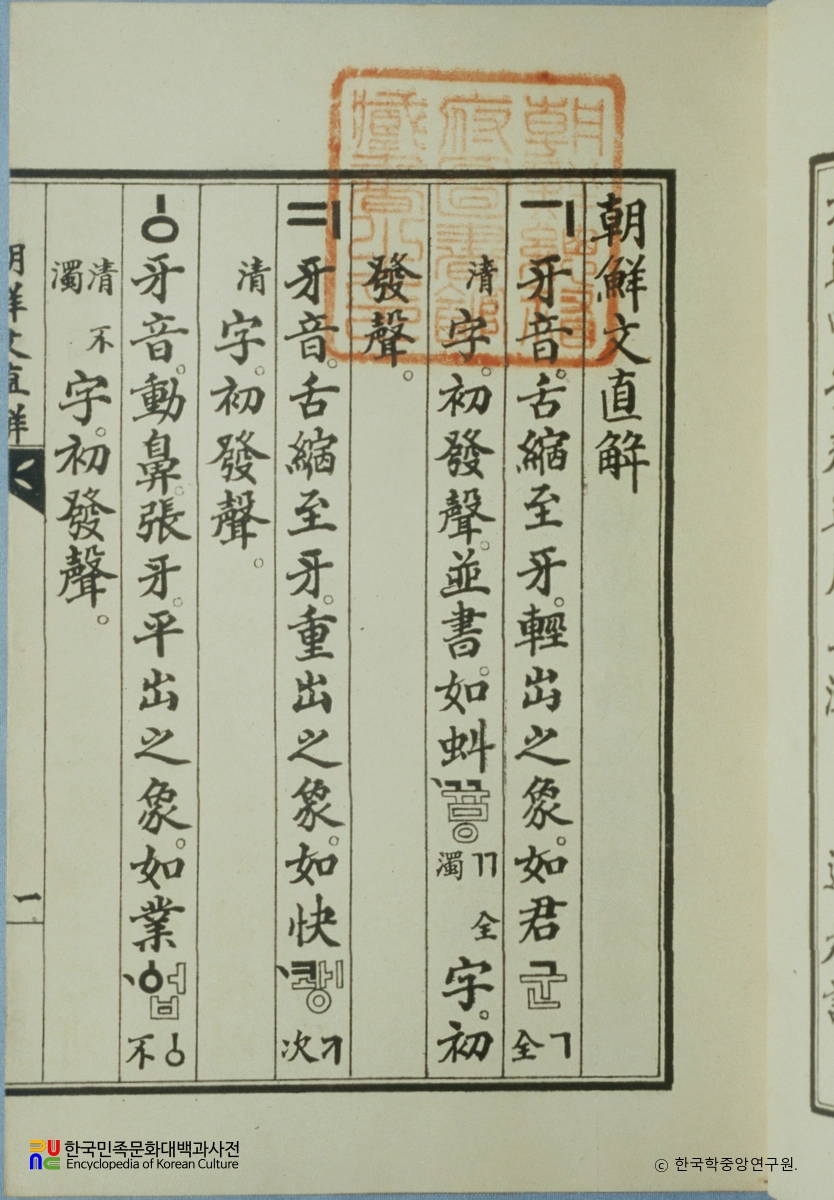 朝鮮文直解
ㄱ 牙音。舌縮至牙。輕出之象。如君군 ㄱ全
清字。初發聲。並書。如蚪뀽 ㄲ全濁字。初
發聲。
ㅋ 牙音。舌縮至牙。重出之象。如快쾡 ㅋ次
清字。初發聲。
ㆁ 牙音。動鼻。張牙。平出之象。如業ᅌᅥᆸ ㆁ不
清不濁字。初發聲。
朝鮮文直解
一
朝鮮總督
府圖書館
藏書之印
한국민족문화대백과사전
Encyclopedia of Korean Culture
ⓒ 한국학중앙연구원.